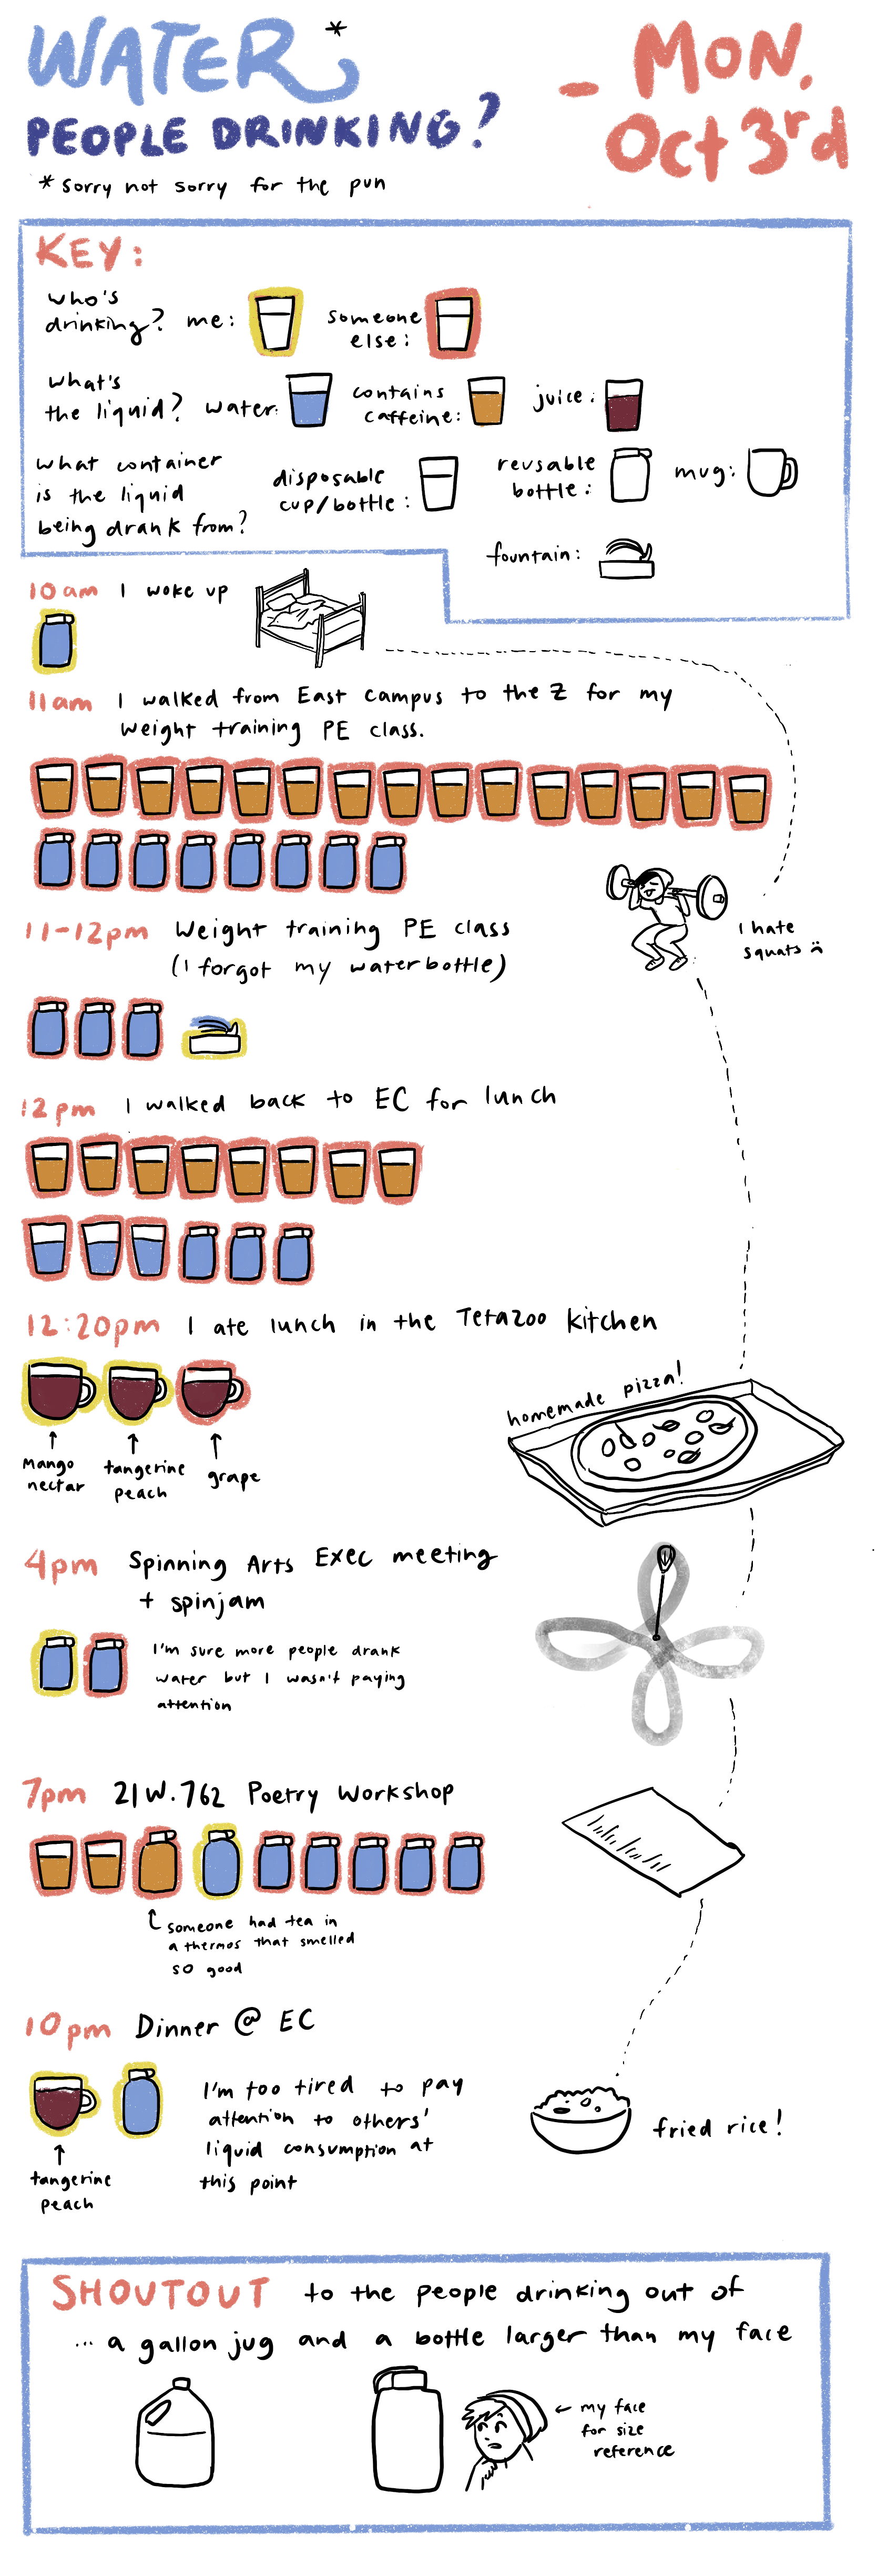 WATER*
PEOPLE DRINKING?
- MON.
Oct 3rd
* sorry not sorry for the pun
KEY:
who's
drinking? me:
someone
else:
what's
the liquid? water:
contains
caffeine:
juice:
what container
is the liquid
being drank from?
disposable
cup/bottle:
reusable
bottle:
mug:
fountain:
10am I woke up
11am I walked from East Campus to the Z for my
weight training PE class.
11-12pm Weight training PE class
(I forgot my waterbottle)
I hate
squats :(
12pm I walked back to EC for lunch
12:20pm I ate lunch in the Tetazoo kitchen
Mango
nectar
tangerine
peach
grape
homemade pizza!
4pm Spinning Arts Exec meeting
+ spinjam
I'm sure more people drank
water but I wasn't paying
attention
7pm 21W.762 Poetry Workshop
someone had tea in
a thermos that smelled
so good
10pm Dinner @ EC
I'm too tired to pay
attention to others'
liquid consumption at
this point
tangerine
peach
fried rice!
SHOUTOUT to the people drinking out of
... a gallon jug and a bottle larger than my face
← my face
for size
reference